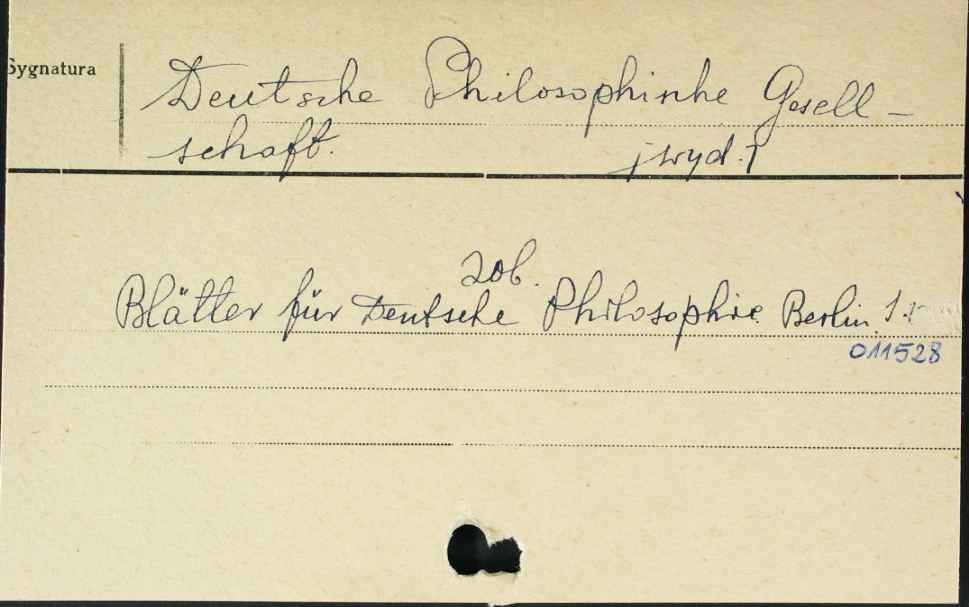 Sygnatura
Deutsche Philosophische Gesell-
schaft. jwyd.1
zob.
Blätter für Deutsche Philosophie. Berlin.
011528